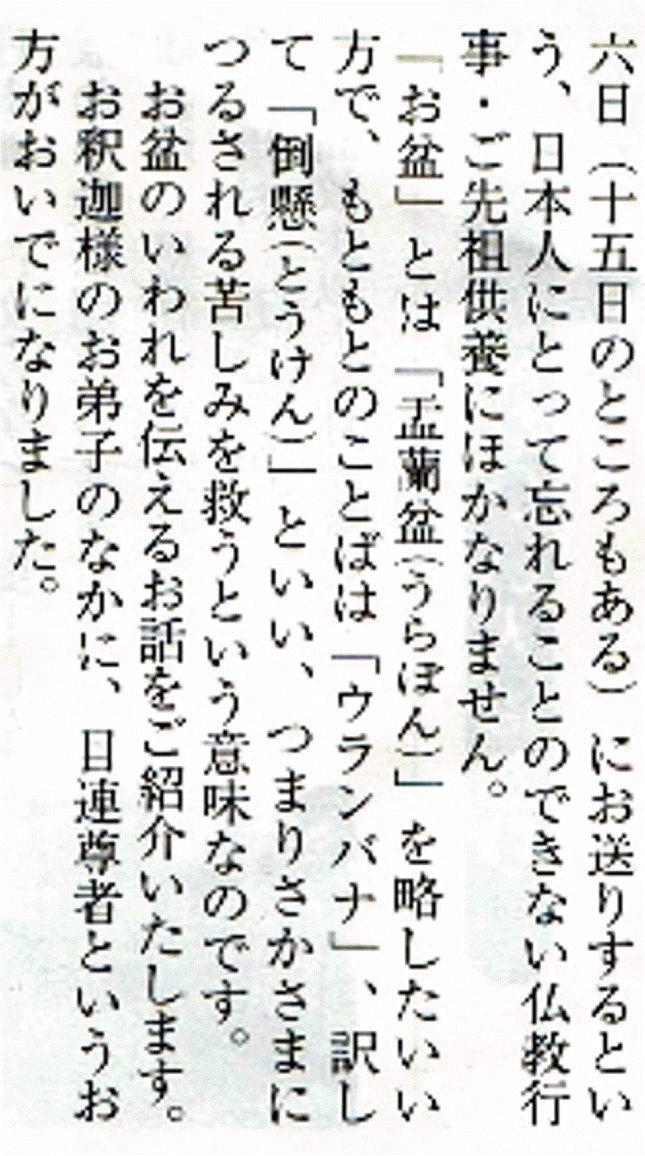 六日（十五日のところもある）にお送りするとい
う、日本人にとって忘れることのできない仏教行
事・ご先祖供養にほかなりません。
「お盆」とは「盂蘭盆（うらぼん）」を略したいい
方で、もともとのことばは「ウランバナ」、訳し
て「倒懸（とうけん）」といい、つまりさかさまに
つるされる苦しみを救うという意味なのです。
お盆のいわれを伝えるお話をご紹介いたします。
お釈迦様のお弟子のなかに、目連尊者というお
方がおいでになりました。